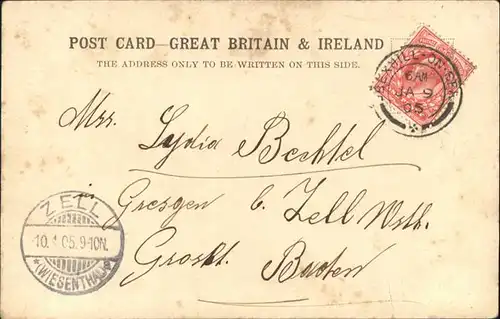 POST CARD—GREAT BRITAIN & IRELAND
THE ADDRESS ONLY TO BE WRITTEN ON THIS SIDE.
BEXHILL-ON-SEA
6 AM
JA 9
05
Mrs. Lydia Bechtel
Gresgen b. Zell Wsth.
Grosht. Baden
ZELL
10.1.05.9-10N.
*(WIESENTHAL)*